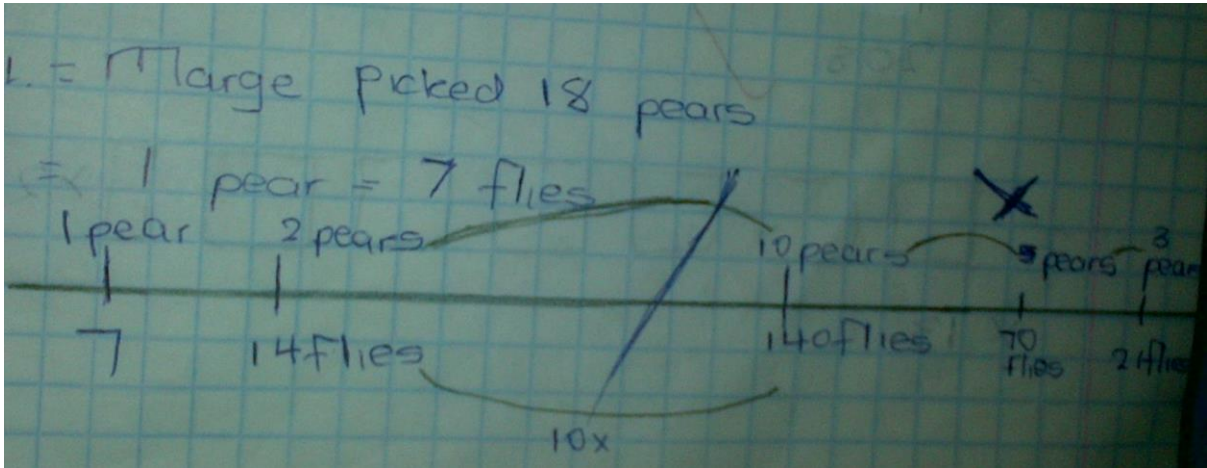 1. = Marge picked 18 pears
= 1 pear = 7 flies
1 pear 2 pears 10 pears 5 pears 3
pear
7 14 flies 140 flies 70 21 flies
flies
10x